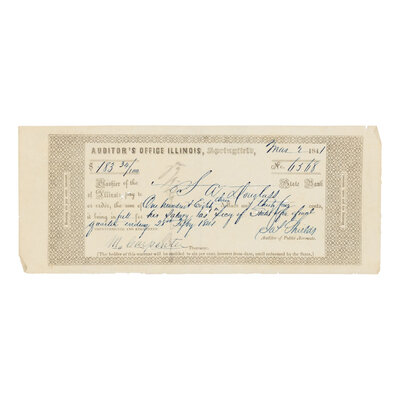 AUDITOR'S OFFICE ILLINOIS, Springfield, Mar 2 1841
$ 183 36/100 No. 6368
Cashier of the State Bank
of Illinois pay to S A Douglass
or order, the sum of One hundred Eighty three Dollars and thirty six cents,
it being in full for his Salary as Secy of State for final
quarter ending 28th Feby 1841
M Carpenter Treasurer. Jas Shields
Auditor of Public Accounts.
[The holder of this warrant will be entitled to six per cent. interest from date, until redeemed by the State.]